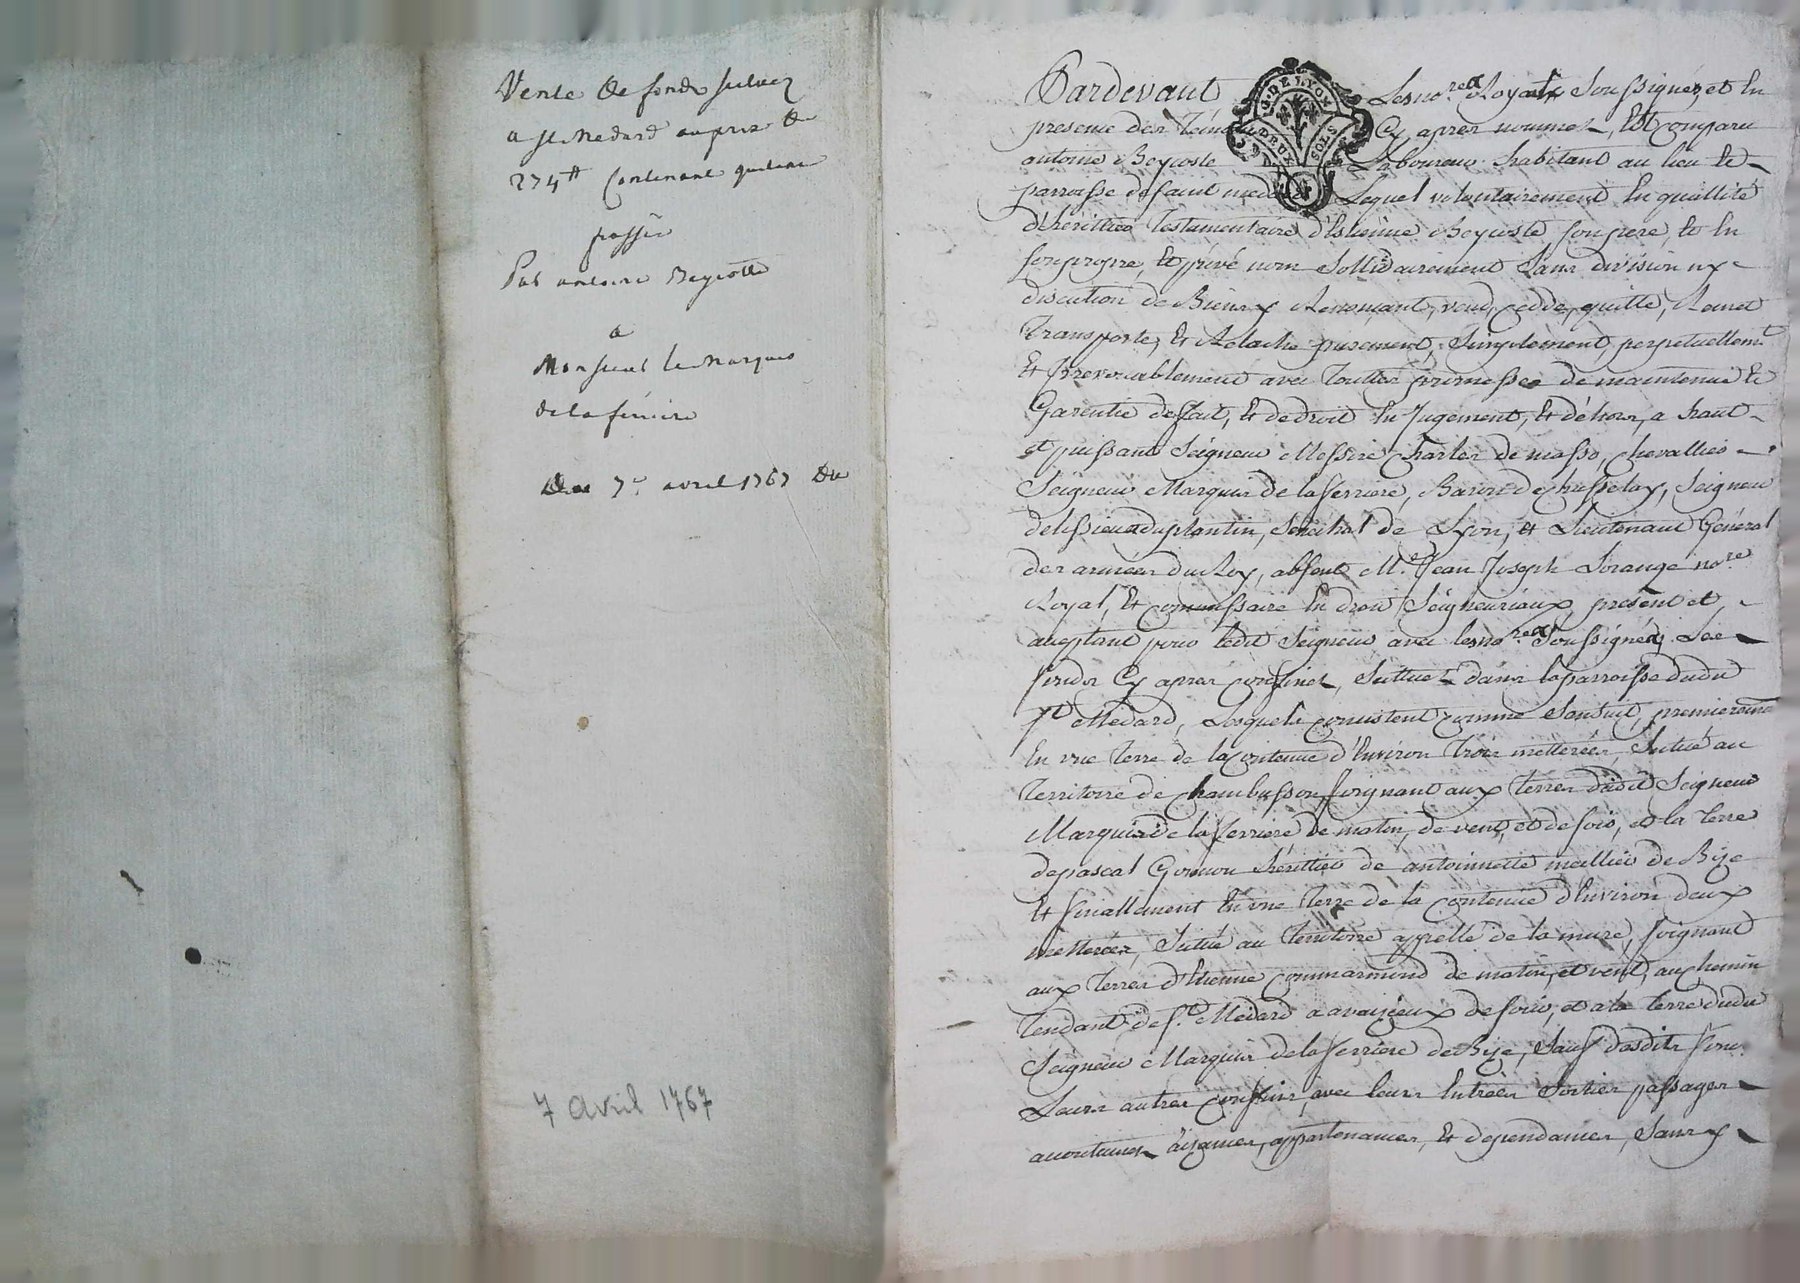 Vente De fonds situez
a St Medard au prix de
274tt Contenant quittance
passée
Par antoine Beycoste
a
Monsieur le Marquis
de la ferriere
Du 7e avril 1767 Du
7 avril 1767
Pardevant Les no.res Royaux Soussignés, et En
G. DE LYON
DEUX SOLS
presence des Temoins Cy apres nommés, Est comparu
antoine Beycoste Laboureur habitant au lieu et
parroisse de saint medard Lequel volontairement En quallité
d'hérittier Testamentaire d'Estienne Beycoste son pere, et En
son propre, et privé nom Sollidairement Sans division ny
discution de Biens y Renonçant, vend, cedde, quitte, Remet
Transporte, et Relache purement, Simplement, perpetuellemt
Et Irrevocablement avec Touttes promesses de maintenue et
Garentie de fait, et de droit En Jugement, et déhors, a haut
et puissant Seigneur Messire Charles de masso, chevallier
Seigneur Marquis de la ferriere, Baron de Chasselay, Seigneur
de lissieu du plantin, Senéchal de Lyon, et Lieutenant Général
des armées du Roy, absent Me. Jean Joseph Lorange no.re
Royal, et commissaire En droits Seigneuriaux, présent et
acceptant pour ledit Seigneur avec les no.res Soussignés Les
fonds Cy apres confinés, Scitués dans la parroisse dudit
St Médard, Lesquels consistent comme Sensuit, premierement
En une Terre de la contenue d'Environ Trois metterées, Scitué au
Territoire de Chambusson Joignant aux Terres dudit Seigneur
Marquis de la ferriere de matin, de vent, et de soir, et la Terre
de pascal Gonnon hérittier de antoinnette meillier de Bize
Et finallement En une Terre de la contenue d'Environ deux
metterées, Scitué au Territoire appellé de la mure, Joignant
aux Terres d'Etienne commarmond de matin, et vent, au chemin
Tendant de St. Médard a aveizieux de soir, et a la Terre dudit
Seigneur Marquis de la ferriere de Bize, Sauf desdits fonds
Leurs autres confins, avec leurs Entrées Sorties passages
accoutumés aizances, appartenances, Et dependances, Sans y